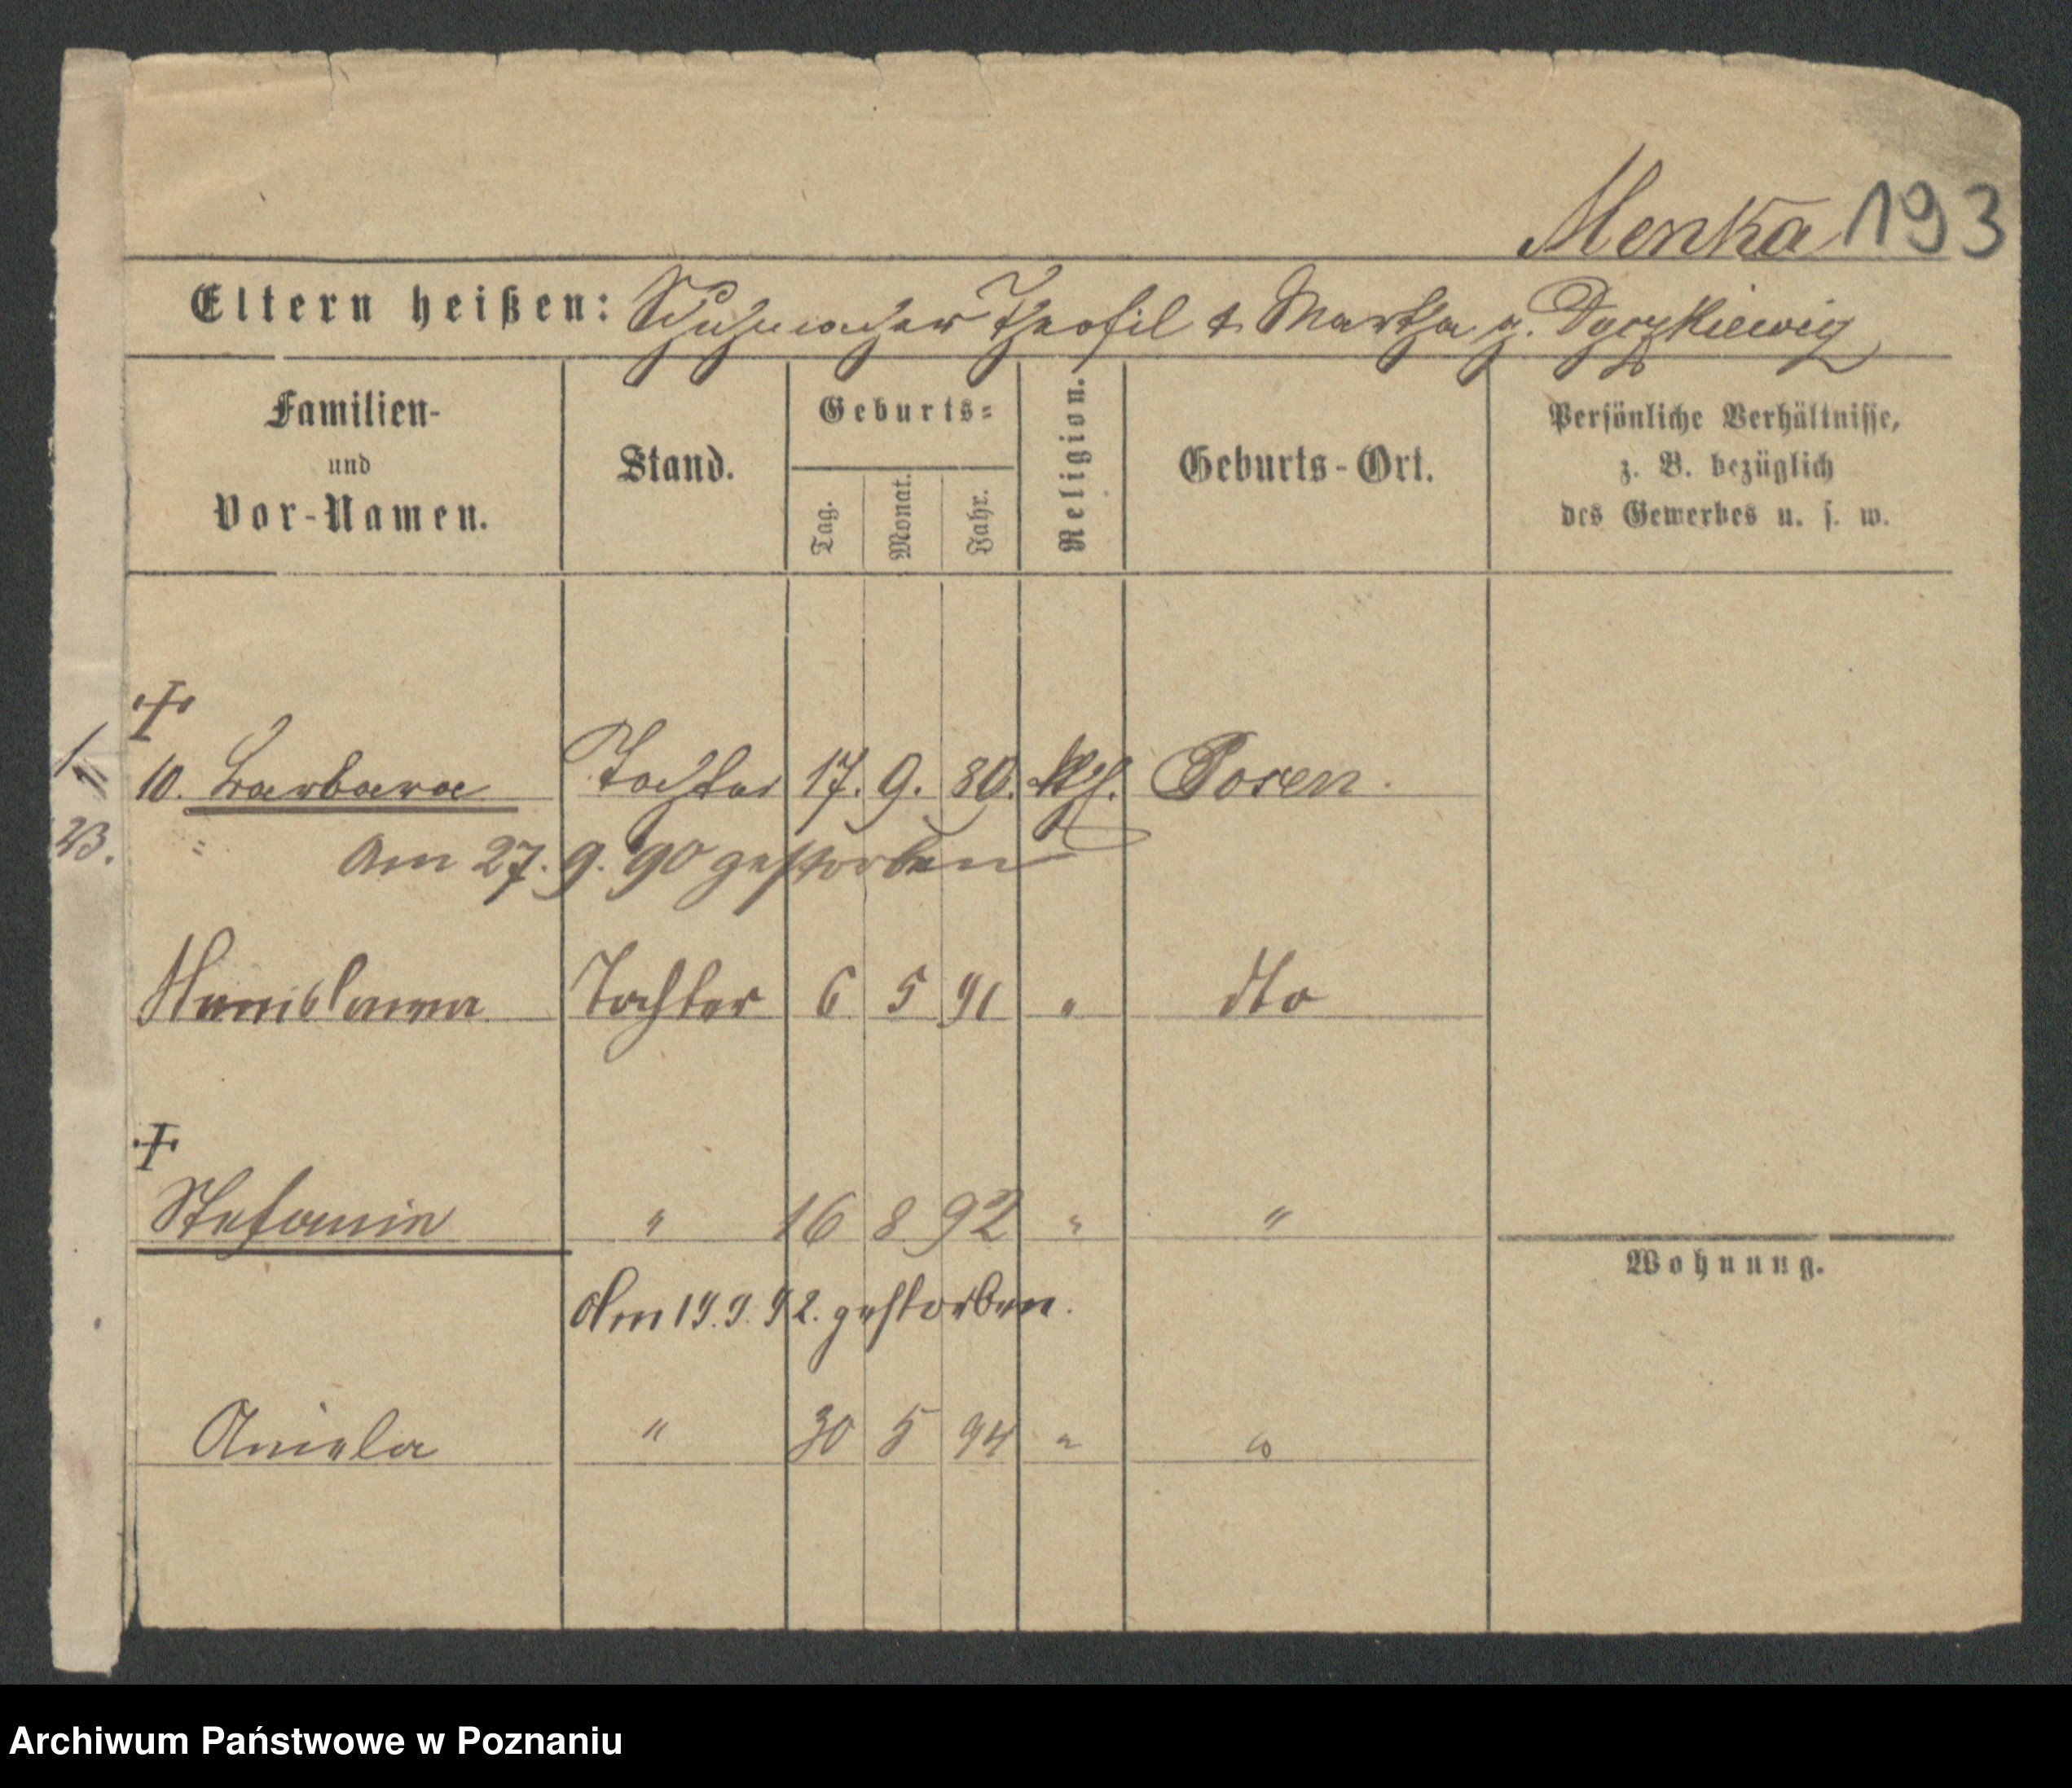 Menka 193
Eltern heißen: Schuhmacher Theofil & Martha g. Dyczkiewicz
Familien-
und
Vor-Namen.
Stand.
Geburts-
Tag.
Monat.
Jahr.
Religion.
Geburts-Ort.
Persönliche Verhältnisse,
z. B. bezüglich
des Gewerbes u. s. w.
10. Barbara Tochter 17. 9. 89. kth. Posen.
23.
Am 27. 9. 90 gestorben
Stanislawa Tochter 6 5 91 " dto
Stefanie " 16 8 92 " "
Am 19. 9. 92. gestorben.
Wohnung.
Aniela " 30 5 94 " "
Archiwum Państwowe w Poznaniu